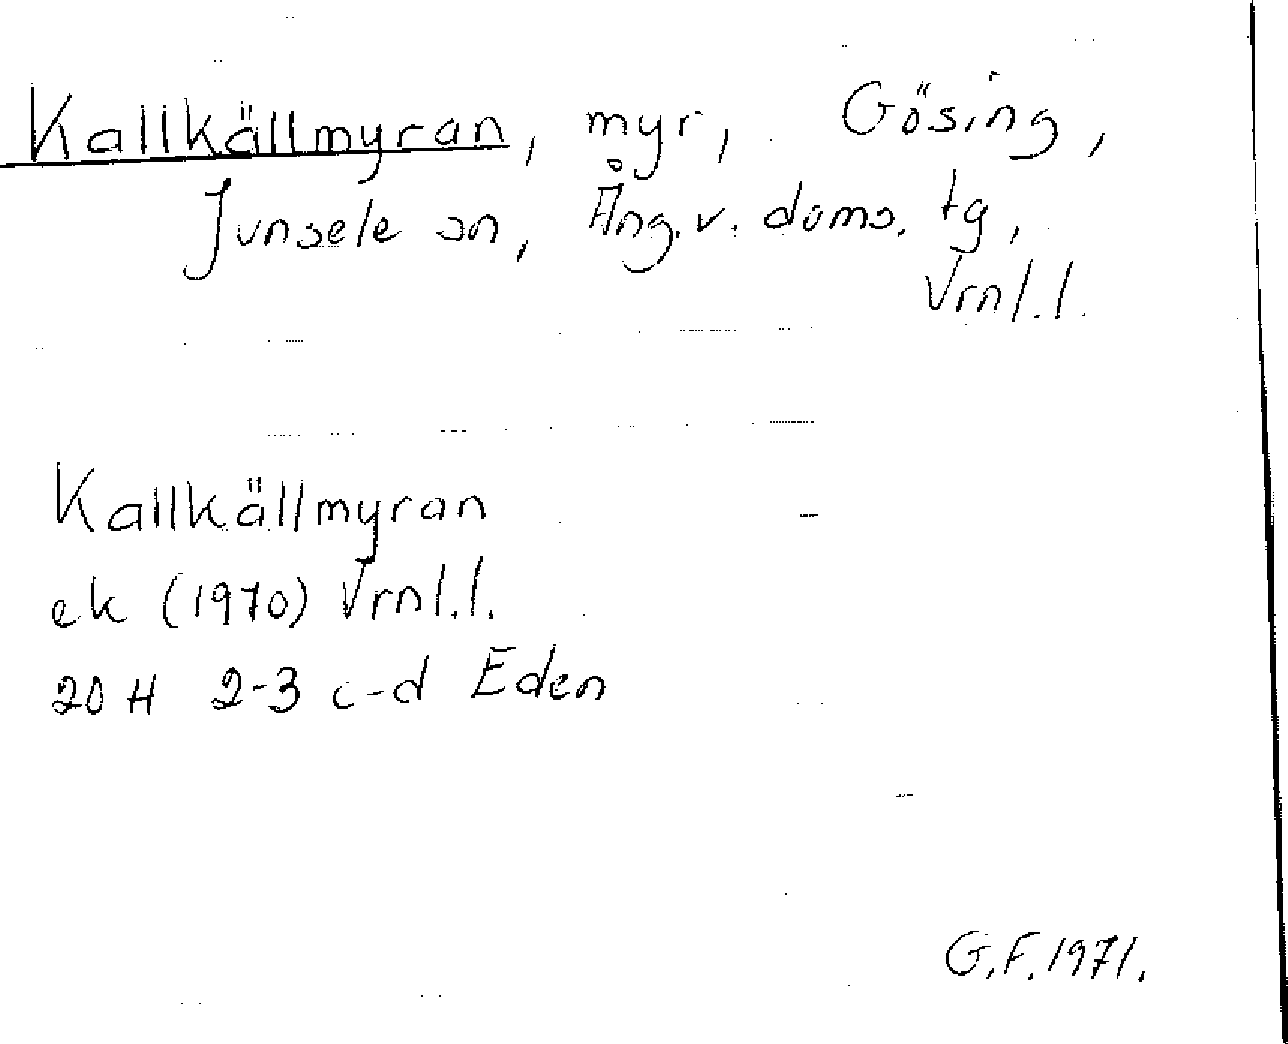 Kallkällmyran, myr, Gösing,
Junsele sn, Ång. v. doms. tg,
Vrnl.l.
Kallkällmyran
ek (1970) Vrnl.l.
20 H 2-3 c-d Eden
G.F. 1971.